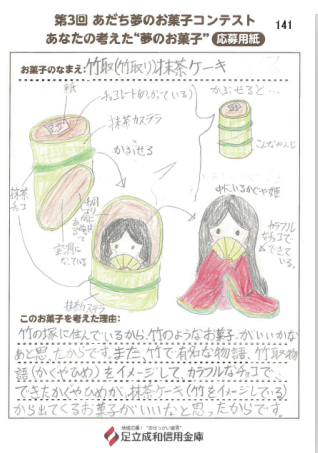 第3回 あだち夢のお菓子コンテスト
141
あなたの考えた“夢のお菓子” 応募用紙
お菓子のなまえ:竹取(竹取り)抹茶ケーキ
紙
チョコレート(のっかっている)
かぶせると…
抹茶カステラ
かぶせる
こんなかんじ
抹茶
チョコ
中に入いるかぐや姫
空洞に
なっている
カラフル
なチョコで
できて
いる。
抹茶カステラ
このお菓子を考えた理由:
竹の塚に住んでいるから、竹のようなお菓子がいいかな
あと思ったからです。また、竹で有名な物語、竹取物
語(かぐやひめ)をイメージして、カラフルなチョコで、
できたかぐやひめが、抹茶ケーキ(竹をイメージしている)
から出てくるお菓子がいいなと思ったからです。
地域応援！“おせっかい宣言”
足立成和信用金庫